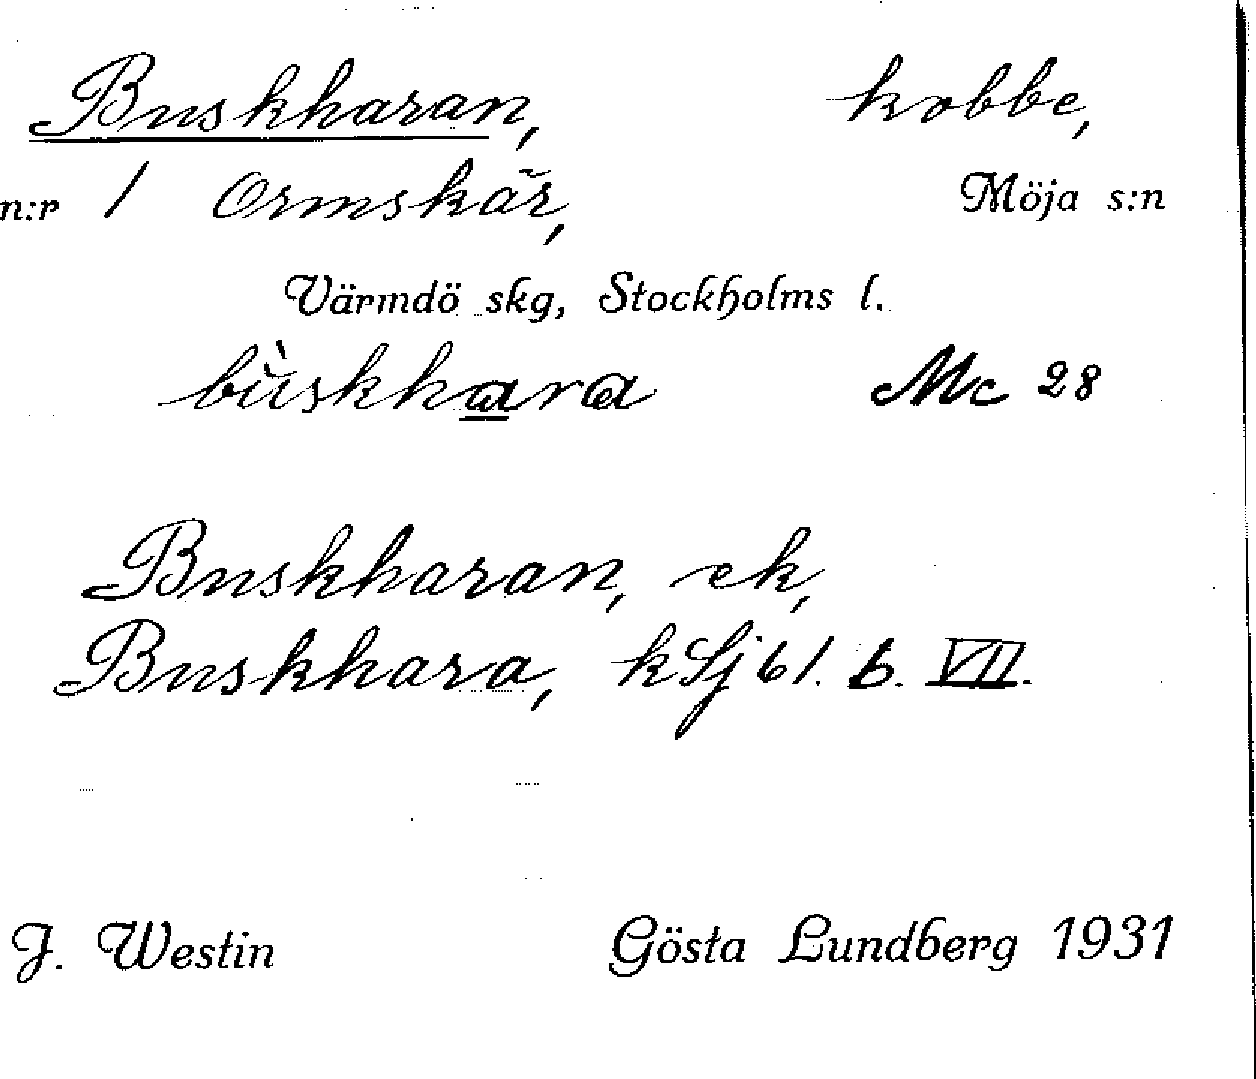 Buskharan, kobbe,
n:r 1 Ormskär, Möja s:n
Värmdö skg, Stockholms l.
bùskhara Mc 28
Buskharan, ek,
Buskhara, kSj 61. b. VII.
J. Westin Gösta Lundberg 1931